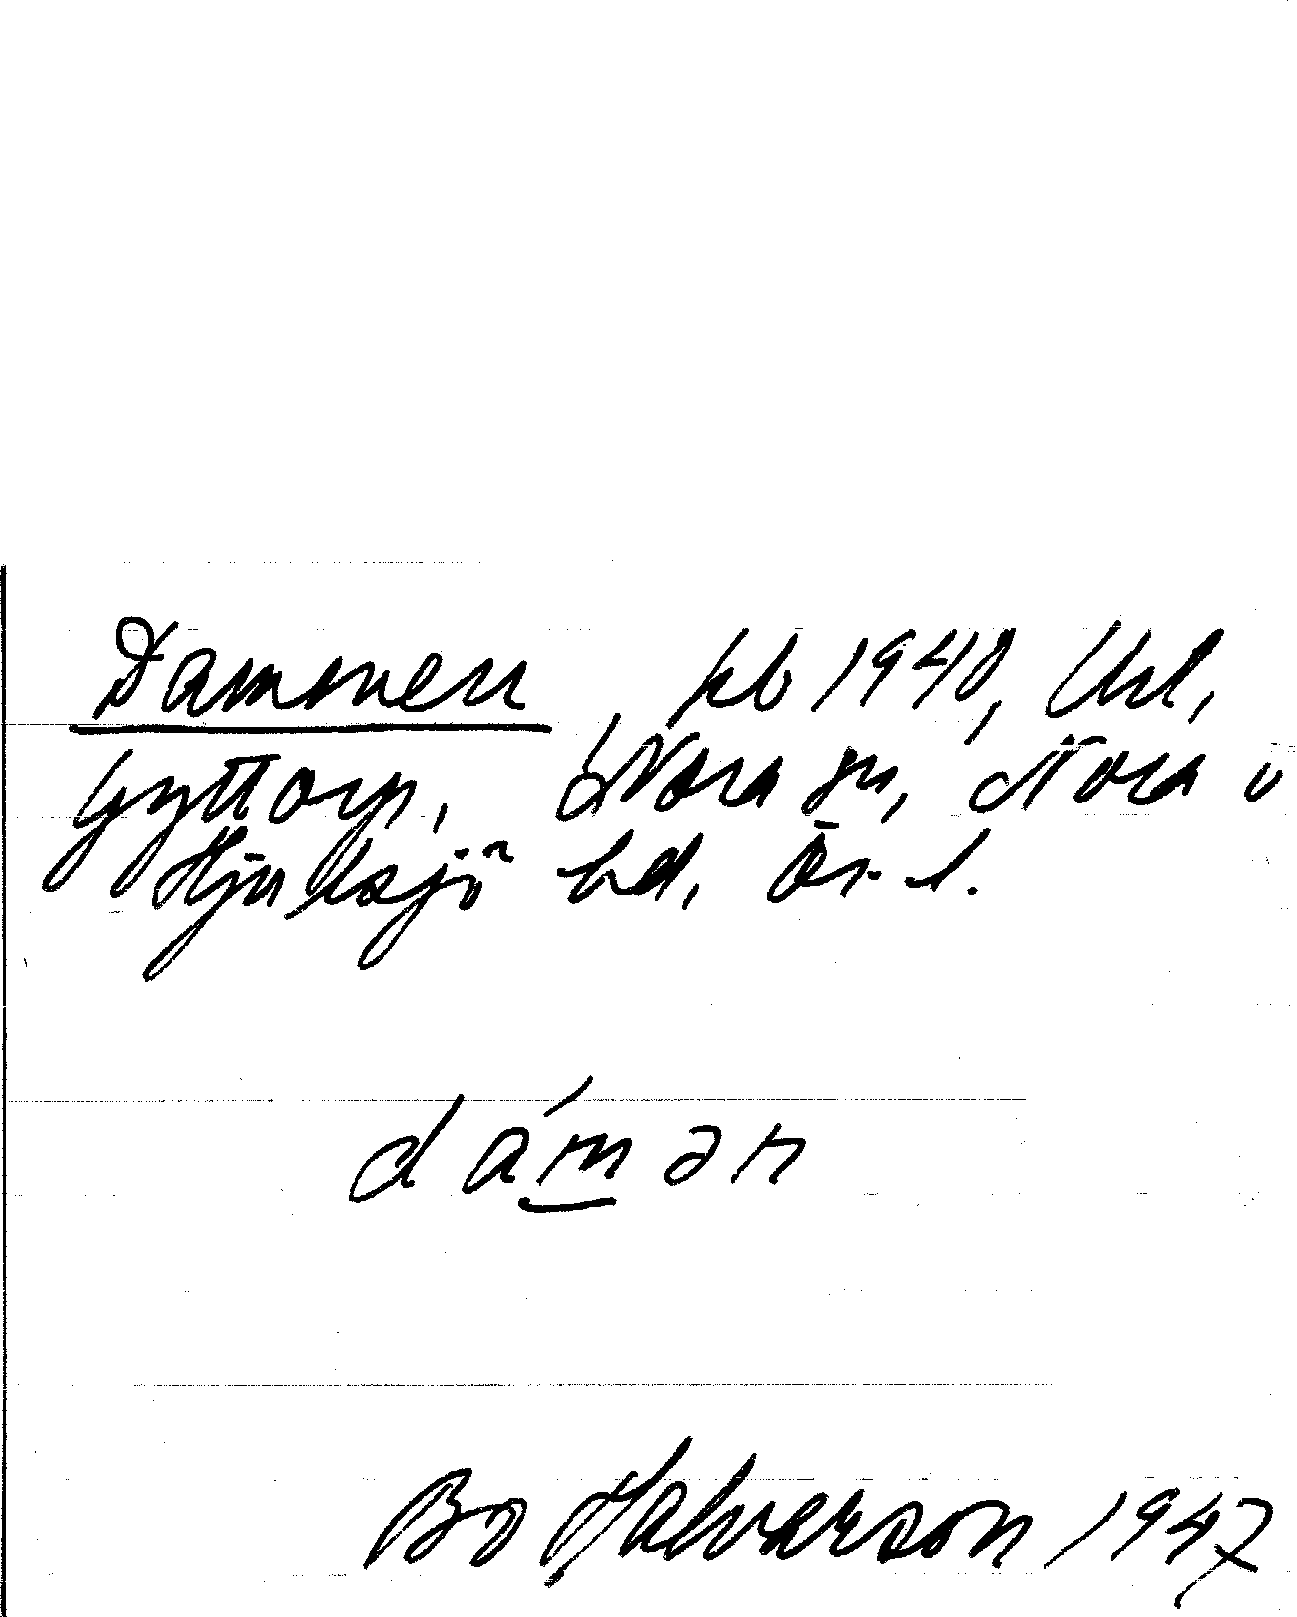 Dammen, kb 1940, Url,
Gyttorp, Nora sn, Nora o
Hjulsjö bd, Ör. l.
dám̲ən
Bo Halvarson 1947